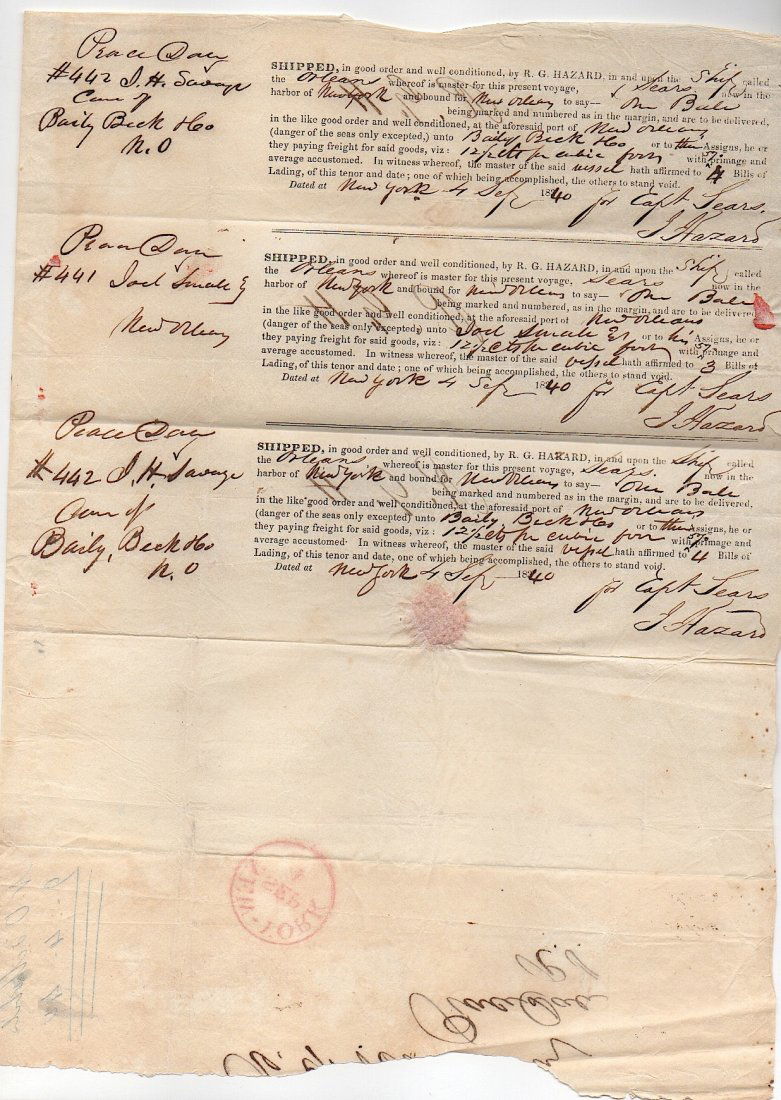 Peace Dav
#442 J. H. Savage
Care of
Baily Beck & Co
N. O
SHIPPED, in good order and well conditioned, by R. G. HAZARD, in and upon the Ship called
the Orleans whereof is master for this present voyage, Sears now in the
harbor of New York and bound for New Orleans to say— One Bale
being marked and numbered as in the margin, and are to be delivered,
in the like good order and well conditioned, at the aforesaid port of New Orleans
(danger of the seas only excepted,) unto Baily Beck & Co or to their Assigns, he or
they paying freight for said goods, viz: 12½ cts per cubic foot with 5% primage and
average accustomed. In witness whereof, the master of the said vessel hath affirmed to 4 Bills of
Lading, of this tenor and date; one of which being accomplished, the others to stand void.
Dated at New York 4 Sep 1840 for Capt Sears.
J Hazard
Peace Dav
#441 Joel Small
New Orleans
SHIPPED, in good order and well conditioned, by R. G. HAZARD, in and upon the Ship called
the Orleans whereof is master for this present voyage, Sears now in the
harbor of New York and bound for New Orleans to say— One Bale
being marked and numbered, as in the margin, and are to be delivered
in the like good order and well conditioned, at the aforesaid port of New Orleans
(danger of the seas only excepted,) unto Joel Small or to his Assigns, he or
they paying freight for said goods, viz: 12½ cts per cubic foot with 5% primage and
average accustomed. In witness whereof, the master of the said vessel hath affirmed to 3 Bills of
Lading, of this tenor and date; one of which being accomplished, the others to stand void.
Dated at New York 4 Sep 1840 for Capt Sears
J Hazard
Peace Dav
#442 J. H. Savage
Care of
Baily, Beck & Co
N. O
SHIPPED, in good order and well conditioned, by R. G. HAZARD, in and upon the Ship called
the Orleans whereof is master for this present voyage, Sears. now in the
harbor of New York and bound for New Orleans to say— One Bale
being marked and numbered as in the margin, and are to be delivered,
in the like good order and well conditioned, at the aforesaid port of New Orleans
(danger of the seas only excepted) unto Baily, Beck & Co or to their Assigns, he or
they paying freight for said goods, viz: 12½ cts per cubic foot with 5% primage and
average accustomed. In witness whereof, the master of the said vessel hath affirmed to 4 Bills of
Lading, of this tenor and date, one of which being accomplished, the others to stand void.
Dated at New York 4 Sep 1840 for Capt Sears
J Hazard
NEW-YORK
SEP